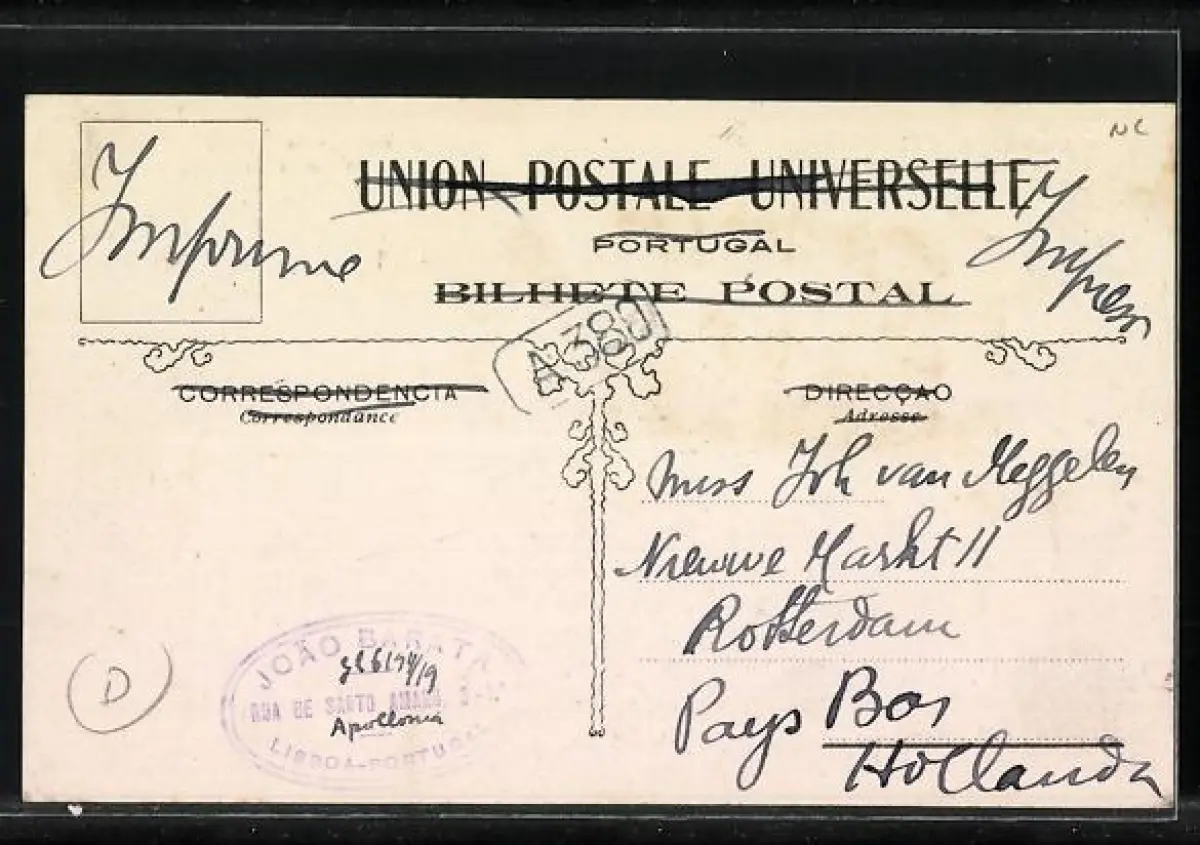 NC
UNION POSTALE UNIVERSELLE
Imprime
Impres
PORTUGAL
BILHETE POSTAL
A 380
CORRESPONDENCIA
Correspondance
DIRECÇÃO
Adresse
Miss Joh van Meggelen
Nieuwe Markt 11
Rotterdam
Pays Bas
Hollanda
D
JOÃO BARATA
RUA DE SANTO
Apollonia
LISBOA-PORTUGAL